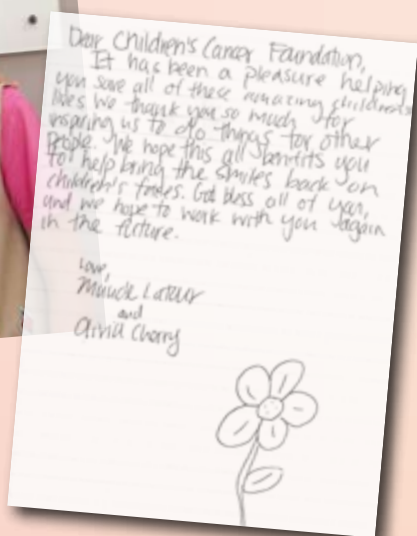 Dear Children's Cancer Foundation,
It has been a pleasure helping
you save all of these amazing children's
lives. We thank you so much for
inspiring us to do things for other
people. We hope this all benifits you
to help bring the smiles back on
children's faces. God bless all of you,
and we hope to work with you again
in the future.
Love,
and
Olivia Cherry